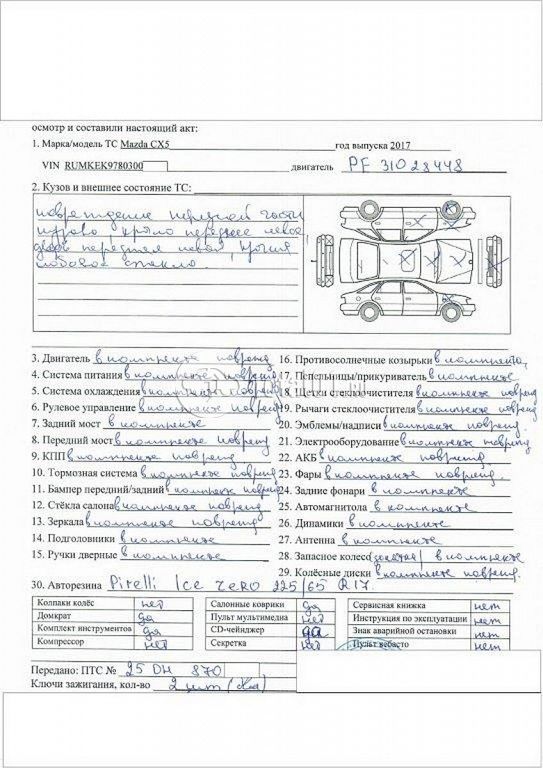 осмотр и составили настоящий акт:
1. Марка/модель ТС Mazda CX5 год выпуска 2017
VIN RUMKEK9780300 двигатель PF 31028448
2. Кузов и внешнее состояние ТС:
повреждение передней части
крыло переднее левое
дверь передняя левая, крыша
лобовое стекло.
3. Двигатель в комплекте поврежд
4. Система питания в комплекте поврежд
5. Система охлаждения в комплекте поврежд
6. Рулевое управление в комплекте поврежд
7. Задний мост в комплекте
8. Передний мост в комплекте поврежд
9. КПП в комплекте поврежд
10. Тормозная система в комплекте поврежд
11. Бампер передний/задний в комплекте поврежд
12. Стёкла салона в комплекте поврежд
13. Зеркала в комплекте поврежд
14. Подголовники в комплекте
15. Ручки дверные в комплекте
16. Противосолнечные козырьки в комплекте
17. Пепельницы/прикуриватель в комплекте
18. Щетки стеклоочистителя в комплекте поврежд
19. Рычаги стеклоочистителя в комплекте поврежд
20. Эмблемы/надписи в комплекте поврежд
21. Электрооборудование в комплекте поврежд
22. АКБ в комплекте поврежд
23. Фары в комплекте поврежд.
24. Задние фонари в комплекте
25. Автомагнитола в комплекте
26. Динамики в комплекте
27. Антенна в комплекте
28. Запасное колесо в комплекте
29. Колёсные диски в комплекте поврежд.
30. Авторезина Pirelli Ice Zero 225/65 R17.
Колпаки колёс нет
Домкрат да
Комплект инструментов да
Компрессор нет
Салонные коврики да
Пульт мультимедиа нет
CD-чейнджер да
Секретка нет
Сервисная книжка нет
Инструкция по эксплуатации нет
Знак аварийной остановки нет
Пульт вебасто нет
Передано: ПТС № 25 ОН 870
Ключи зажигания, кол-во 2 шт